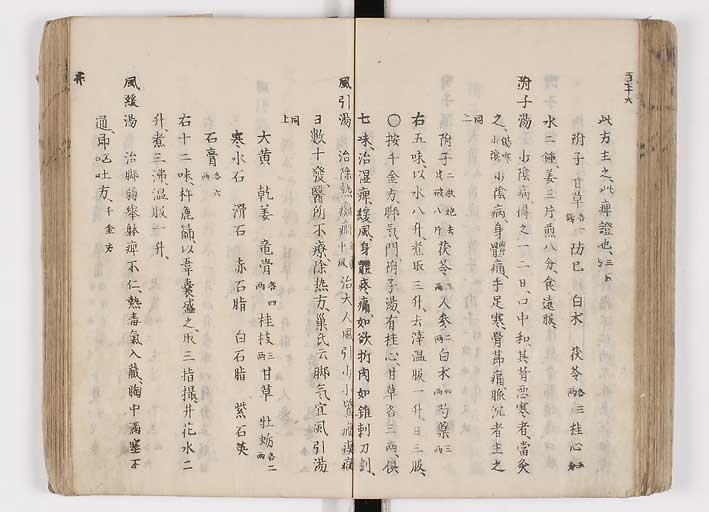 百十六
此方主之、此痺證也、
附子 甘草 各一両 防已 白朮 茯苓 各三両 桂心
水二鍾、姜三片煎八分、食遠服、
附子湯 少陰病得之一二日、口中和、其背悪寒者、當灸
之、傷寒少陰 少陰病、身體痛、手足寒、骨節痛、脈沈者主之
同二 附子 二枚炮去皮破八片 茯苓 三両 人参 二両 白朮 四両 芍藥 三両
右五味、以水八升、煮取三升、去滓温服一升、日三服、
○按千金方脚氣門附子湯、有桂心、甘草各三両、倶
七味、治湿痺緩風、身體疼痛如欲折、肉如錐刺刀割、
風引湯 治除熱癱癇 中風 治大人風引、小小驚癇瘈瘲
日數十發、醫所不療、除热方、巣氏云脚気宜風引湯
同上
大黄 乾姜 竜骨 各四両 桂枝 三両 甘草 牡蛎 各二両
寒水石 滑石 赤石脂 白石脂 紫石英
石膏 各六両
右十二味、杵麁篩、以韋嚢盛之、取三指撮、井花水二
升、煮三沸、温服一升、
風緩湯 治脚弱擧躰痺不仁、熱毒氣入藏、胸中滿塞不
通、即呕吐方、千金方